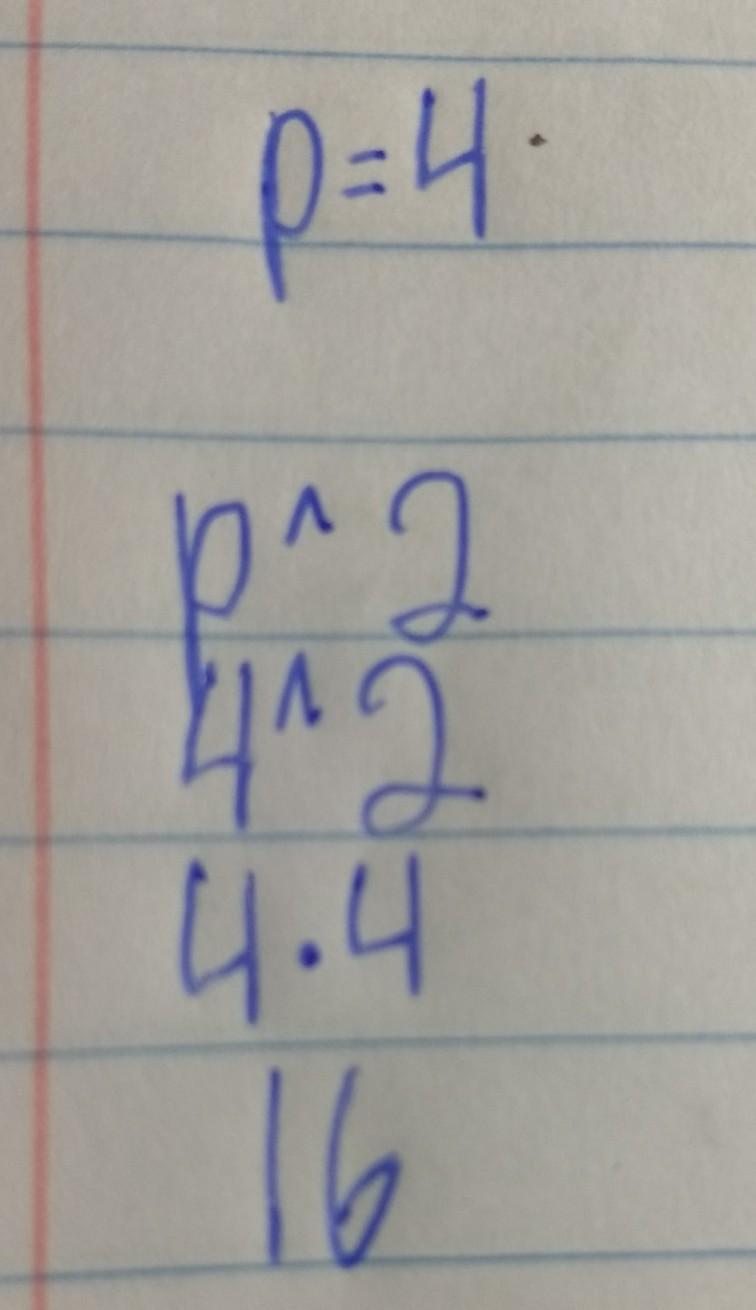 p=4
p^2
4^2
4·4
16